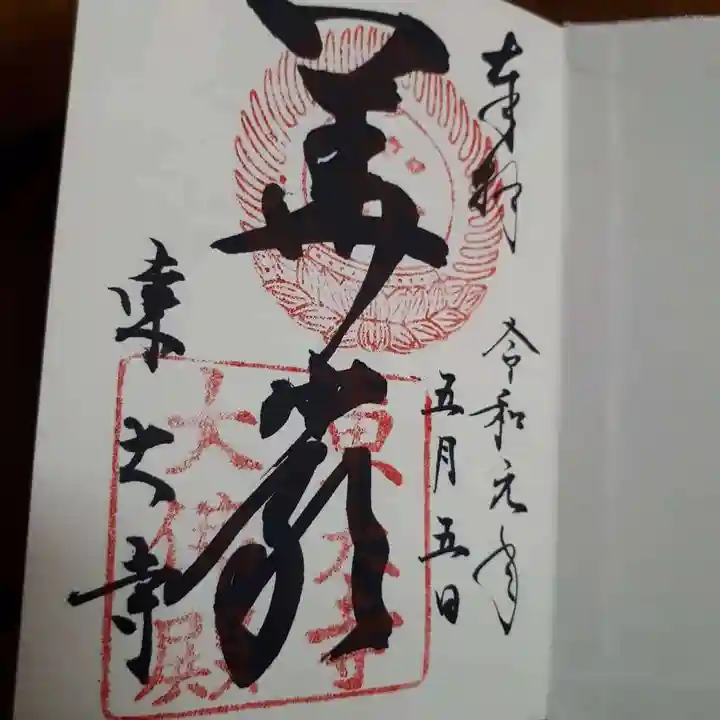 奉拝
令和元年
五月五日
華嚴
東大寺
東大寺
大佛殿